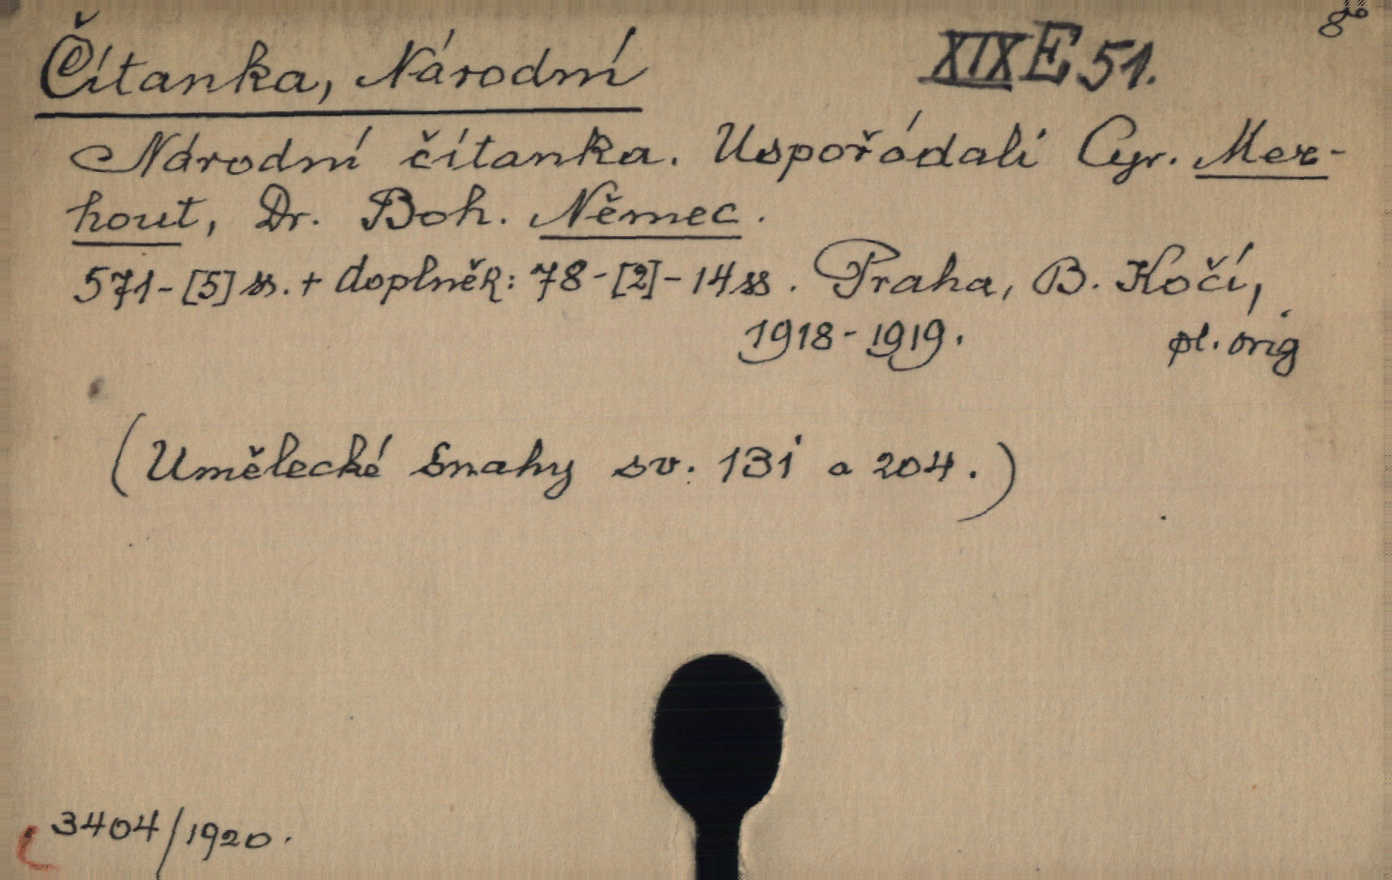 Čítanka, Národní
XIX E 51.
8°
Národní čítanka. Uspořádali Cyr. Mer-
hout, Dr. Boh. Němec.
571-[5] ss. + doplněk: 78-[2]-14 ss. Praha, B. Kočí,
1918-1919. pl. orig
(Umělecké snahy sv. 131 a 204.)
3404/1920.